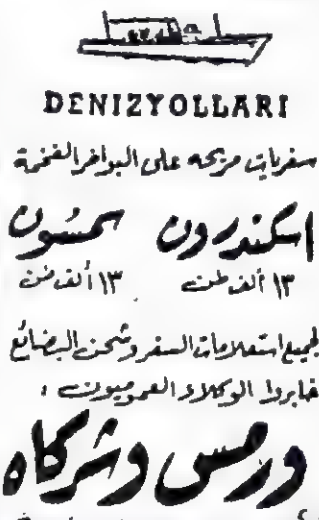 DENIZYOLLARI
سفريات مريحه على البواخر الفخمة
اسكندرون سمسون
١٣ ألف طن ١٣ ألف طن
لجميع استعلامات السفر وشحن البضائع
خابروا الوكلاء العموميون :
ورمس وشركاه